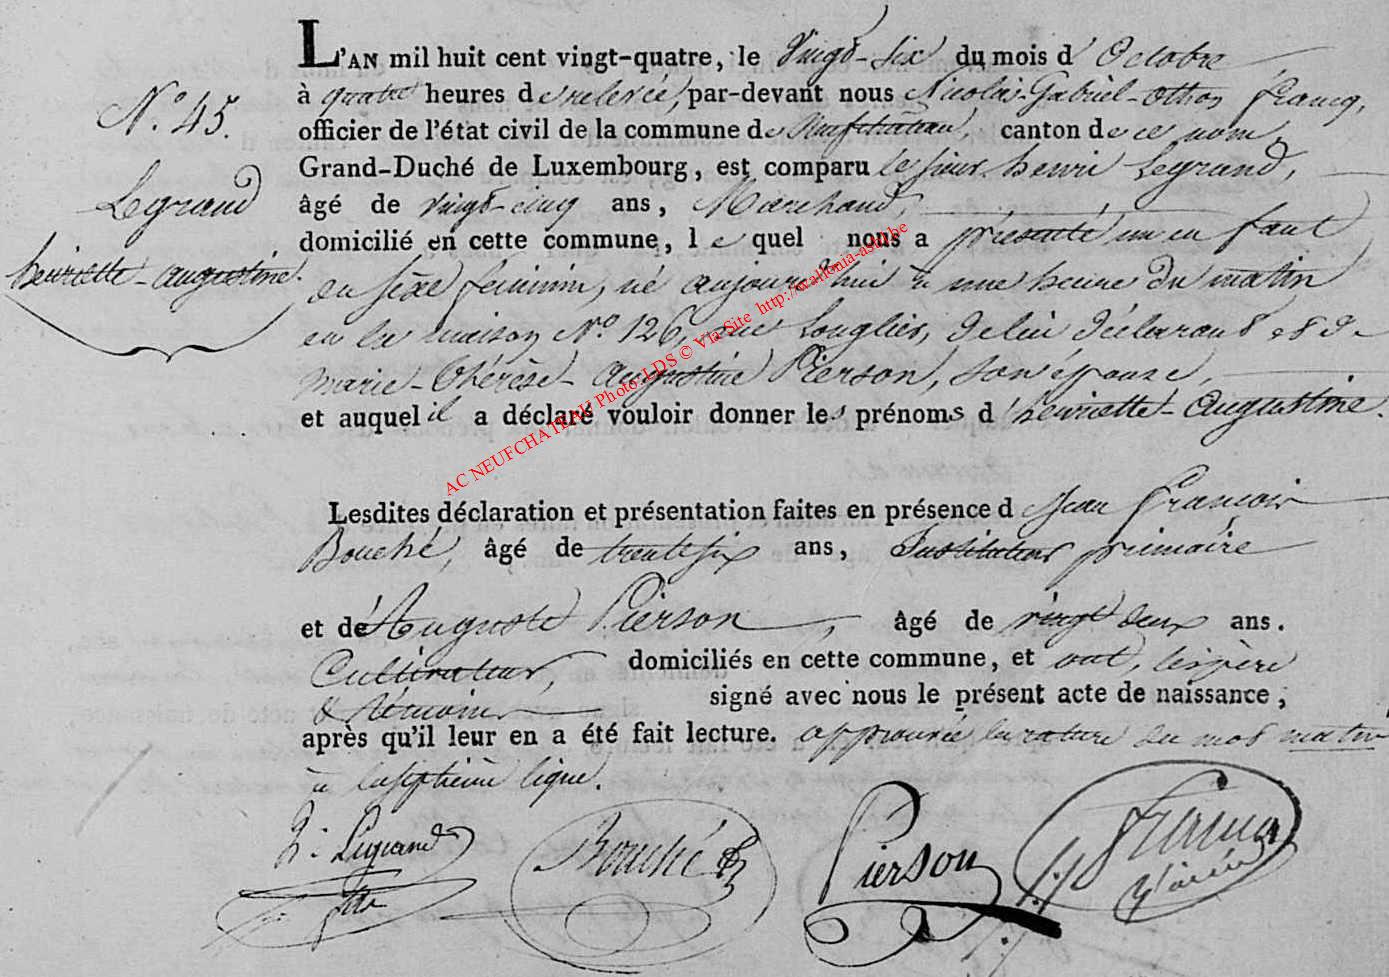 L'AN mil huit cent vingt-quatre, le Vingt-six du mois d'Octobre
à quatre heures de relevée, par-devant nous Nicolas-Gabriel-Othon Francq,
N.º 45.
officier de l'état civil de la commune de Neufchâteau, canton de ce nom,
Grand-Duché de Luxembourg, est comparu le sieur henri Legrand,
Legrand
âgé de Vingt-cinq ans, Marchand,
domicilié en cette commune, lequel nous a présenté un enfant
henriette-augustine.
du sèxe féminin, né aujourd'hui à une heure du matin
en la maison Nº 126, rue Longlier, de lui déclarant et de
Marie-Thérèse-Augustine Pierson, son épouse,
et auquel il a déclaré vouloir donner les prénoms d'henriette-augustine.
AC NEUFCHATEAU Photo: LDS © Via Site http://wallonia-asbl.be
Lesdites déclaration et présentation faites en présence de Jean François
Bouché, âgé de trente six ans, Instituteur primaire
et de Auguste Pierson, âgé de vingt deux ans.
Cultivateur, domiciliés en cette commune, et ont, les père
& témoins signé avec nous le présent acte de naissance,
après qu'il leur en a été fait lecture. approuvée la rature du mot matin
à la septième ligne.
h: Legrand Bouché Pierson Francq